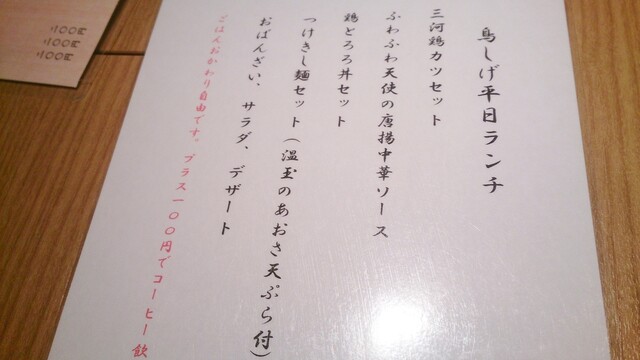 鳥しげ平日ランチ
三河鶏カツセット
ふわふわ天使の唐揚中華ソース
鶏どろろ丼セット
つけきし麺セット（温玉のあおさ天ぷら付）
おばんざい、サラダ、デザート
ごはんおかわり自由です。プラス一〇〇円でコーヒー飲